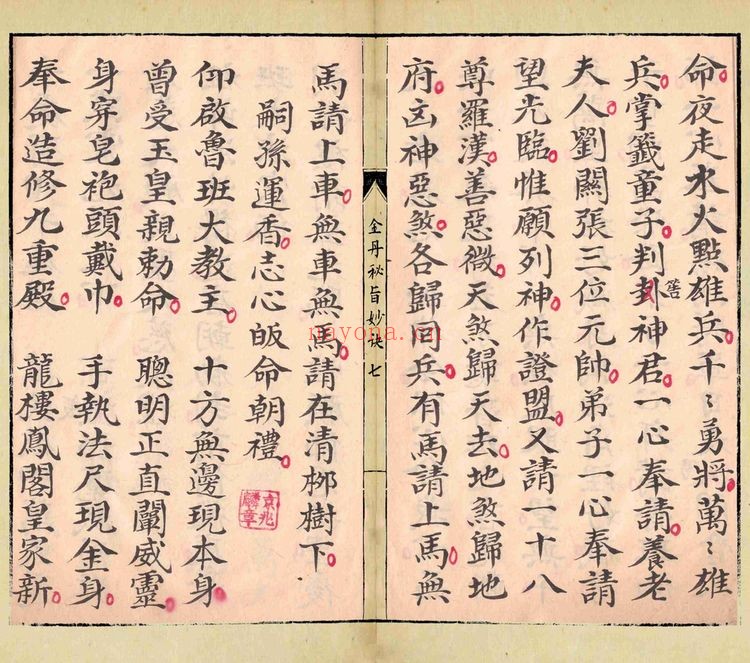 命夜走水火點雄兵千〻勇將萬〻雄
兵掌籤童子判卦筶神君一心奉請養老
夫人劉關張三位元帥弟子一心奉請
望光臨惟願列神作證盟又請一十八
尊羅漢善惡微天煞歸天去地煞歸地
府凶神惡煞各歸司兵有馬請上馬無
金丹秘旨妙訣 七
馬請上車無車無馬請在清柳樹下
嗣孫運香志心皈命朝禮
仰啟魯班大教主 十方無邊現本身
曾受玉皇親勅命 聰明正直闡威靈
身穿皂袍頭戴巾 手執法尺現金身
奉命造修九重殿 龍樓鳳閣皇家新
nayona.cn